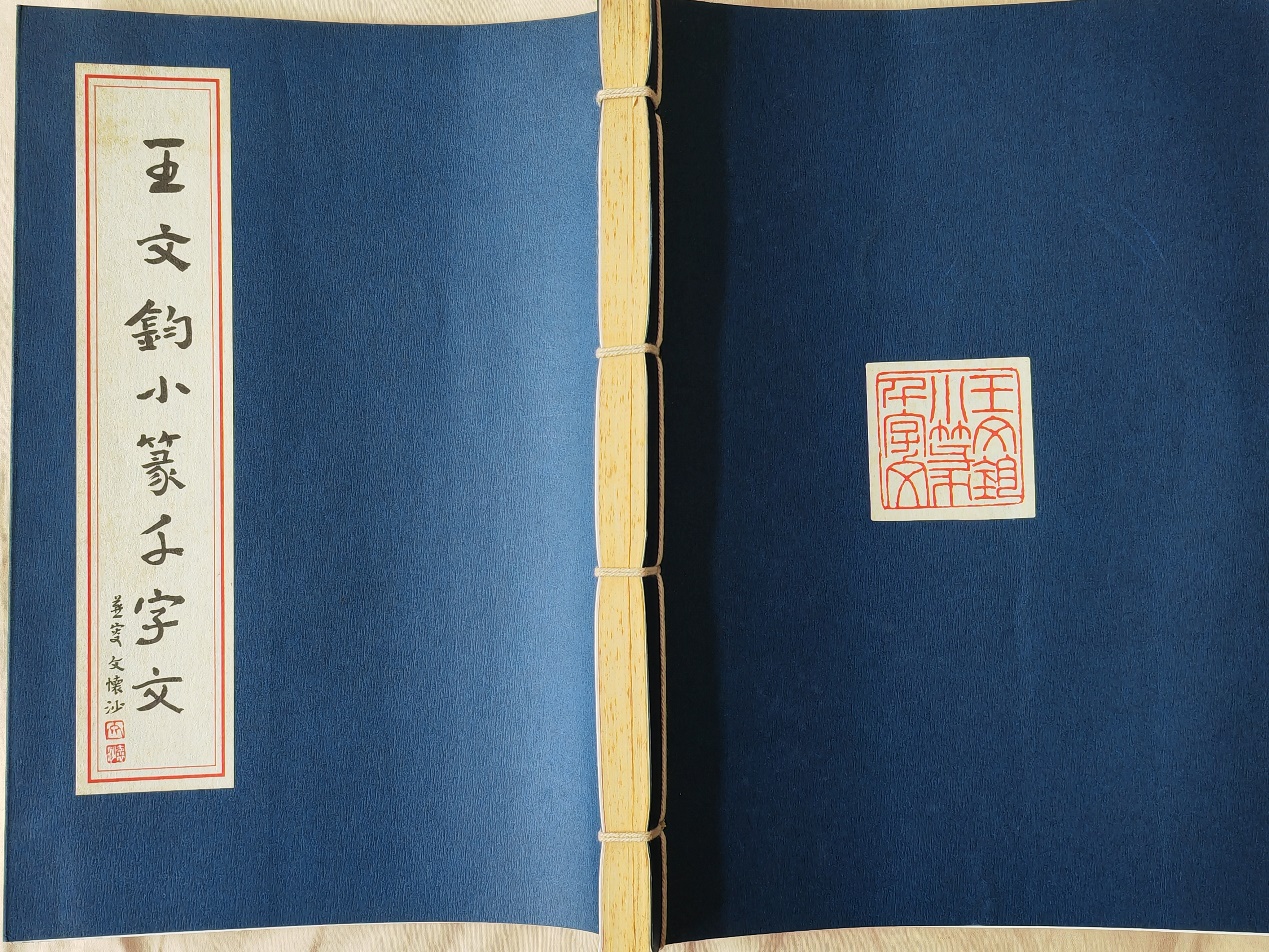 王文鈞小篆千字文
燕叟文懷沙
王文鈞
小篆
千字文